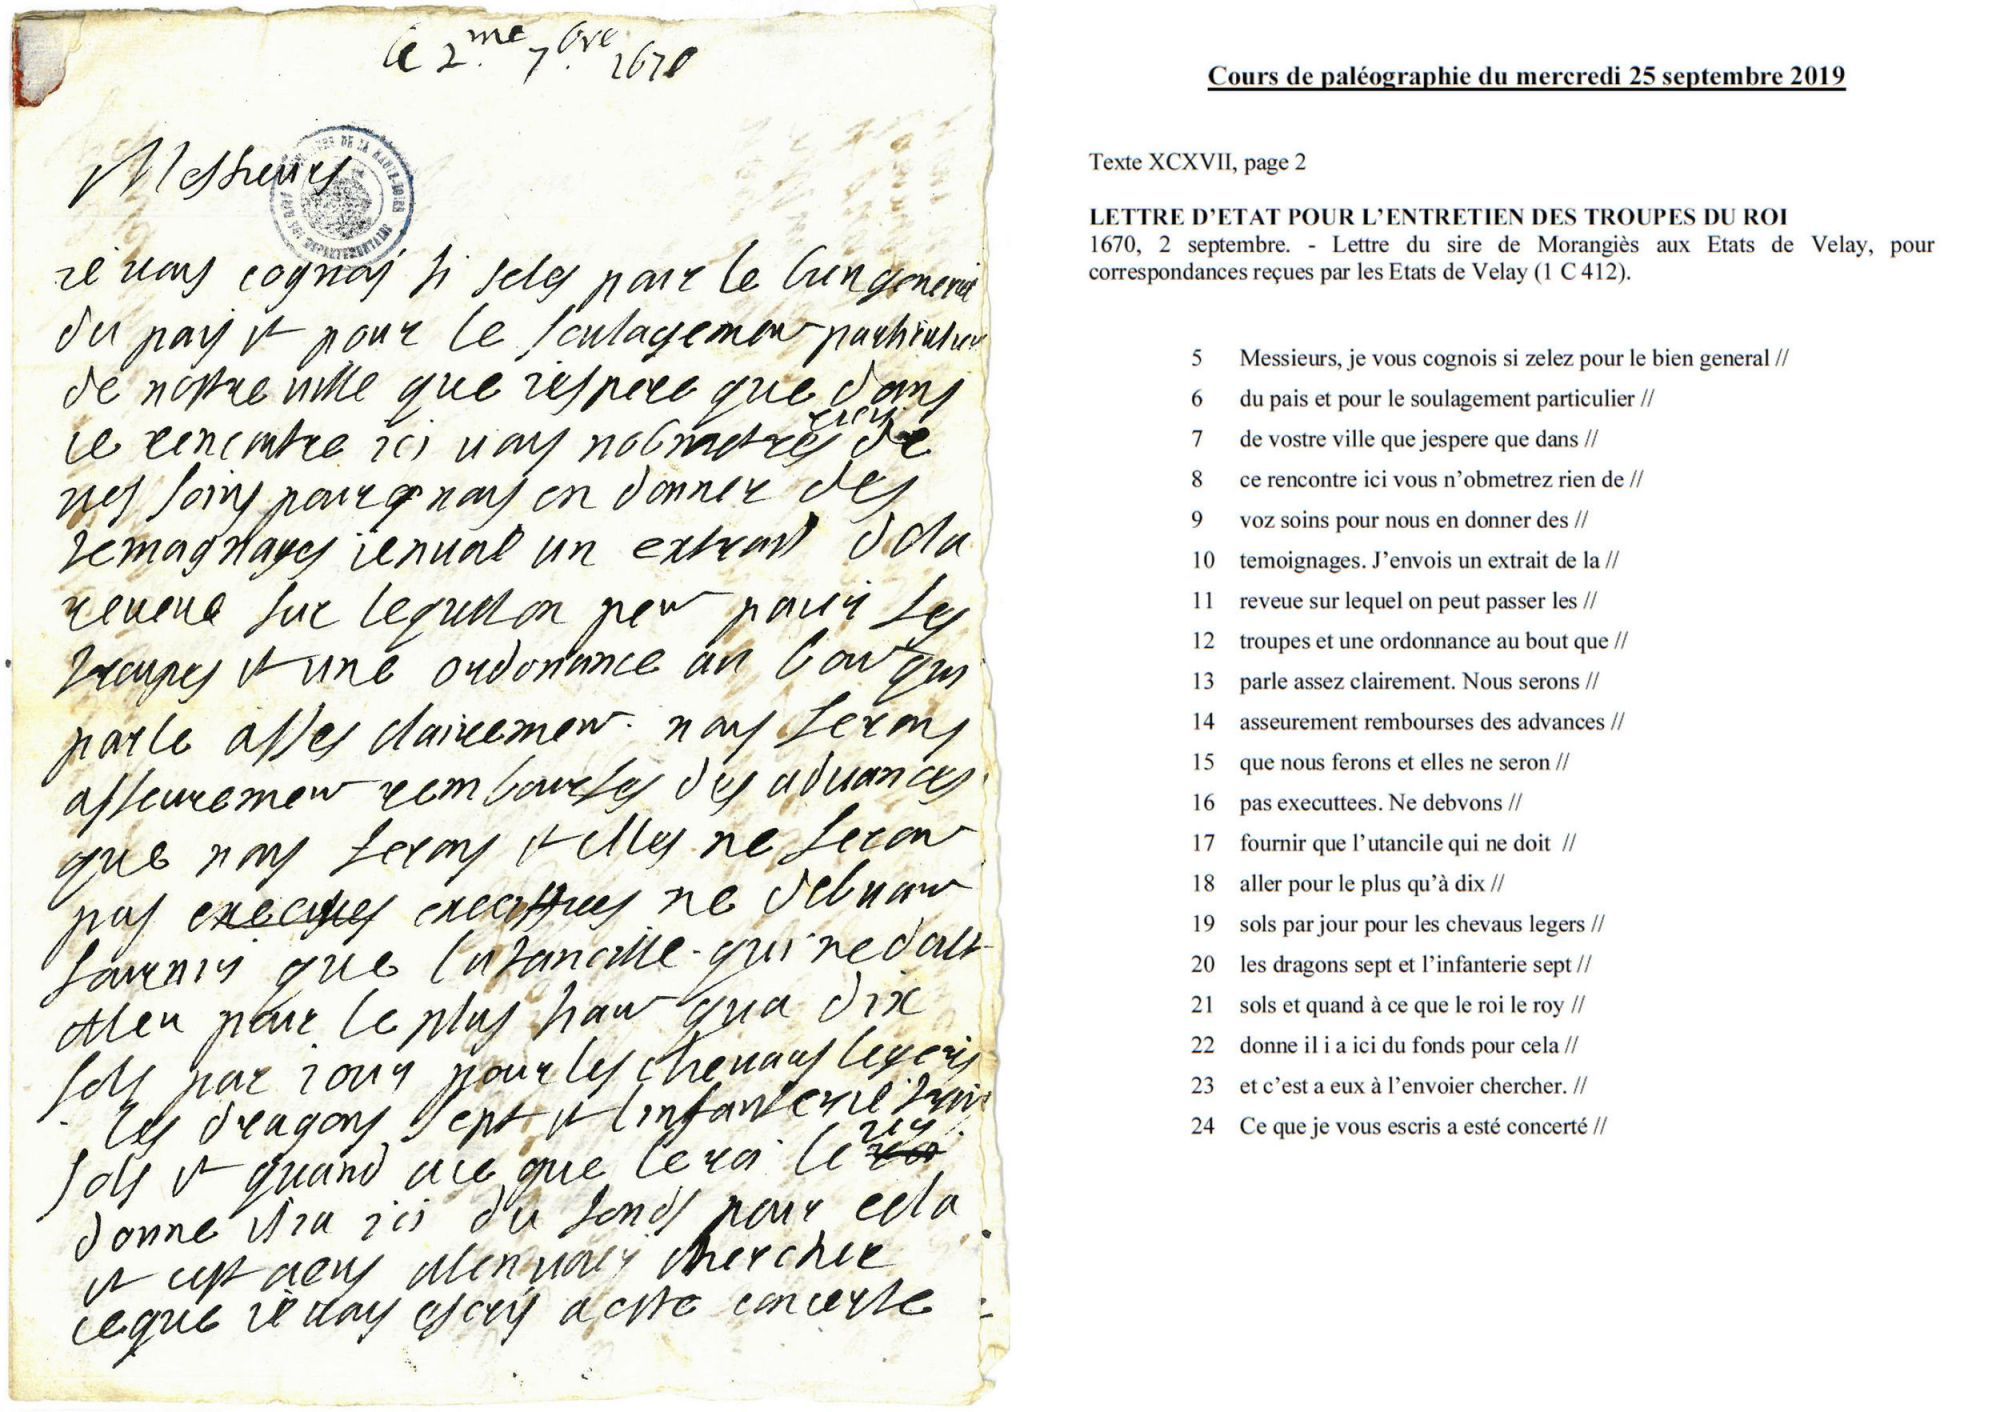 le 2.me 7.bre 1670
Messieurs
ARCHIVES DE LA HAUTE-LOIRE
DEPARTEMENTALES
ie vous cognois si seles pour le bien general
du pais et pour le soulagement particulier
de vostre ville que iespere que dans
ce rencontre ici vous nobmetres rien de
ves soins pour nous en donner des
temognages ienvoie un extrait dela
reveue sur lequel on peut paier les
troupes et une ordonance au bout qui
parle asses clairement. nous serons
asseurement rembourses des advances
que nous ferons et elles ne seront
pas executtees ne debvant
fournir que lutancille qui ne doit
aller pour le plus haut qua dix
sols par iour pour les chevaus legers
les dragons sept et linfanterie trois
sols et quand a ce que le roi le roy
donne il i a ici du fonds pour cela
et cest a eus a lenvoier chercher
ce que ie vous escris a este concerte
Cours de paléographie du mercredi 25 septembre 2019
Texte XCXVII, page 2
LETTRE D’ETAT POUR L’ENTRETIEN DES TROUPES DU ROI
1670, 2 septembre. - Lettre du sire de Morangiès aux Etats de Velay, pour
correspondances reçues par les Etats de Velay (1 C 412).
5 Messieurs, je vous cognois si zelez pour le bien general //
6 du pais et pour le soulagement particulier //
7 de vostre ville que jespere que dans //
8 ce rencontre ici vous n’obmetrez rien de //
9 voz soins pour nous en donner des //
10 temoignages. J’envois un extrait de la //
11 reveue sur lequel on peut passer les //
12 troupes et une ordonnance au bout que //
13 parle assez clairement. Nous serons //
14 asseurement rembourses des advances //
15 que nous ferons et elles ne seron //
16 pas executtees. Ne debvons //
17 fournir que l’utancile qui ne doit //
18 aller pour le plus qu’à dix //
19 sols par jour pour les chevaus legers //
20 les dragons sept et l’infanterie sept //
21 sols et quand à ce que le roi le roy //
22 donne il i a ici du fonds pour cela //
23 et c’est a eux à l’envoier chercher. //
24 Ce que je vous escris a esté concerté //